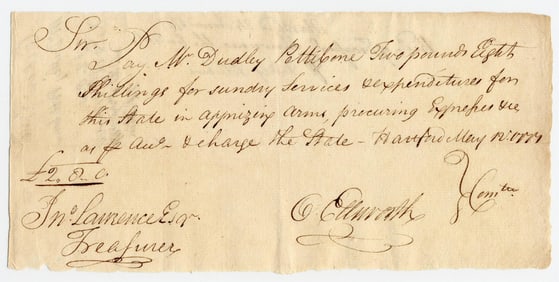 Sir,
Pay Mr. Dudley Pettibone Two pounds Eight
Shillings for sundry Services & expenditures for
this State in apprizing Arms, procuring Expresses &c
as pr Acct & charge the State - Hartford May 12th 1777
£2.8.0.
Jno Lawrence Esqr
Treasurer
O Ellsworth } Comtee